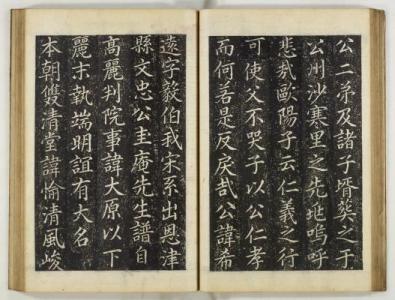 公二弟及諸子壻葬之于
公州沙寒里之先兆嗚呼
悲哉歐陽子云仁義之行
可使父不哭子以公仁孝
而何若是反戾哉公諱希
遠字毅伯我宋系出恩津
縣文忠公圭庵先生譜自
高麗判院事諱大原以下
麗末執端明誼有大名
本朝雙清堂諱愉清風峻